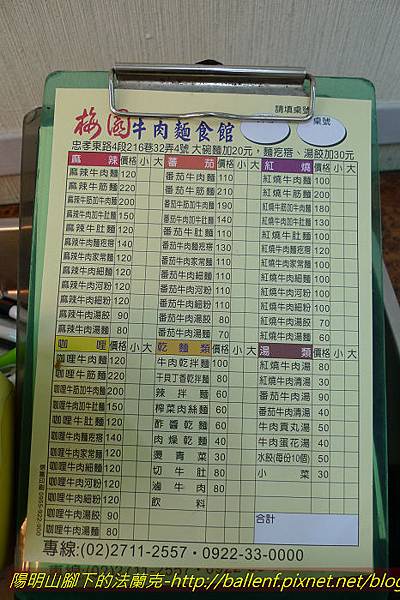 請填桌號
梅園牛肉麵食館
桌號
忠孝東路4段216巷32弄4號 大碗麵加20元,麵疙瘩、湯餃加30元
麻辣 價格 小 大
麻辣牛肉麵 120
麻辣牛筋麵 220
麻辣牛筋加牛肉麵 200
麻辣牛肉加牛肚麵 150
麻辣牛肚麵 120
麻辣牛肉麵疙瘩 140
麻辣牛肉家常麵 120
麻辣牛肉細麵 120
麻辣牛肉河粉 120
麻辣牛肉細粉 120
麻辣牛肉湯餃 90
麻辣牛肉湯麵 80
蕃茄 價格 小 大
番茄牛肉麵 110
番茄牛筋麵 210
番茄牛筋加牛肉麵 190
番茄牛肉加牛肚麵 140
番茄牛肚麵 110
番茄牛肉麵疙瘩 130
番茄牛肉家常麵 110
番茄牛肉細麵 110
番茄牛肉河粉 110
番茄牛肉細粉 110
番茄牛肉湯餃 80
番茄牛肉湯麵 70
紅燒 價格 小 大
紅燒牛肉麵 100
紅燒牛筋麵 200
紅燒牛筋加牛肉麵 180
紅燒牛肉加牛肚麵 130
紅燒牛肚麵 100
紅燒牛肉麵疙瘩 120
紅燒牛肉家常麵 100
紅燒牛肉細麵 100
紅燒牛肉河粉 100
紅燒牛肉細粉 100
紅燒牛肉湯餃 70
紅燒牛肉湯麵 60
咖哩 價格 小 大
咖哩牛肉麵 120
咖哩牛筋麵 220
咖哩牛筋加牛肉麵 200
咖哩牛肉加牛肚麵 150
咖哩牛肚麵 120
咖哩牛肉麵疙瘩 140
咖哩牛肉家常麵 120
咖哩牛肉細麵 120
咖哩牛肉河粉 120
咖哩牛肉細粉 120
咖哩牛肉湯餃 90
咖哩牛肉湯麵 80
乾麵類 價格 小 大
牛肉乾拌麵 100
干貝丁香乾拌麵 80
辣拌麵 60
榨菜肉絲麵 60
酢醬乾麵 60
肉燥乾麵 40
燙青菜 30
切牛肚 80
滷牛肉 80
飲料
湯類 價格 小 大
紅燒牛肉湯 80
紅燒牛肉清湯 30
番茄牛肉湯 90
番茄牛肉清湯 40
牛肉貢丸湯 50
牛肉蛋花湯 40
水餃(每份10個) 50
小菜 30
合計
專線:(02)2711-2557・0922-33-0000
陽明山腳下的法蘭克-http://ballenf.pixnet.net/blog